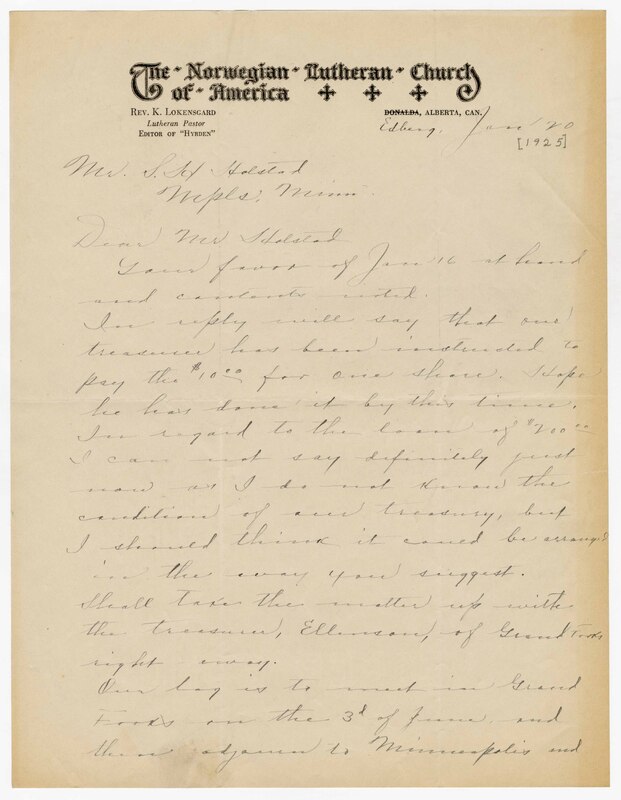 The Norwegian Lutheran Church
of America
REV. K. LOKENSGARD
Lutheran Pastor
EDITOR OF "HYRDEN"
DONALDA, ALBERTA, CAN.
Edberg, Jan 20
[1925]
Mr. S. H Holstad
Mpls, Minn.
Dear Mr Holstad
Your favor of Jan 16 at hand
and contents noted.
In reply will say that our
treasurer has been instructed to
pay the $10.00 for one share. Hope
he has done it by this time.
In regard to the loan of $200.00
I can not say definitely just
now as I do not know the
condition of our treasury, but
I should think it could be arranged
in the way you suggest.
Shall take the matter up with
the treasurer, Ellenson, of Grand Forks
right away.
Our lag is to meet in Grand
Forks on the 3d of June, and
then adjourn to Minneapolis and